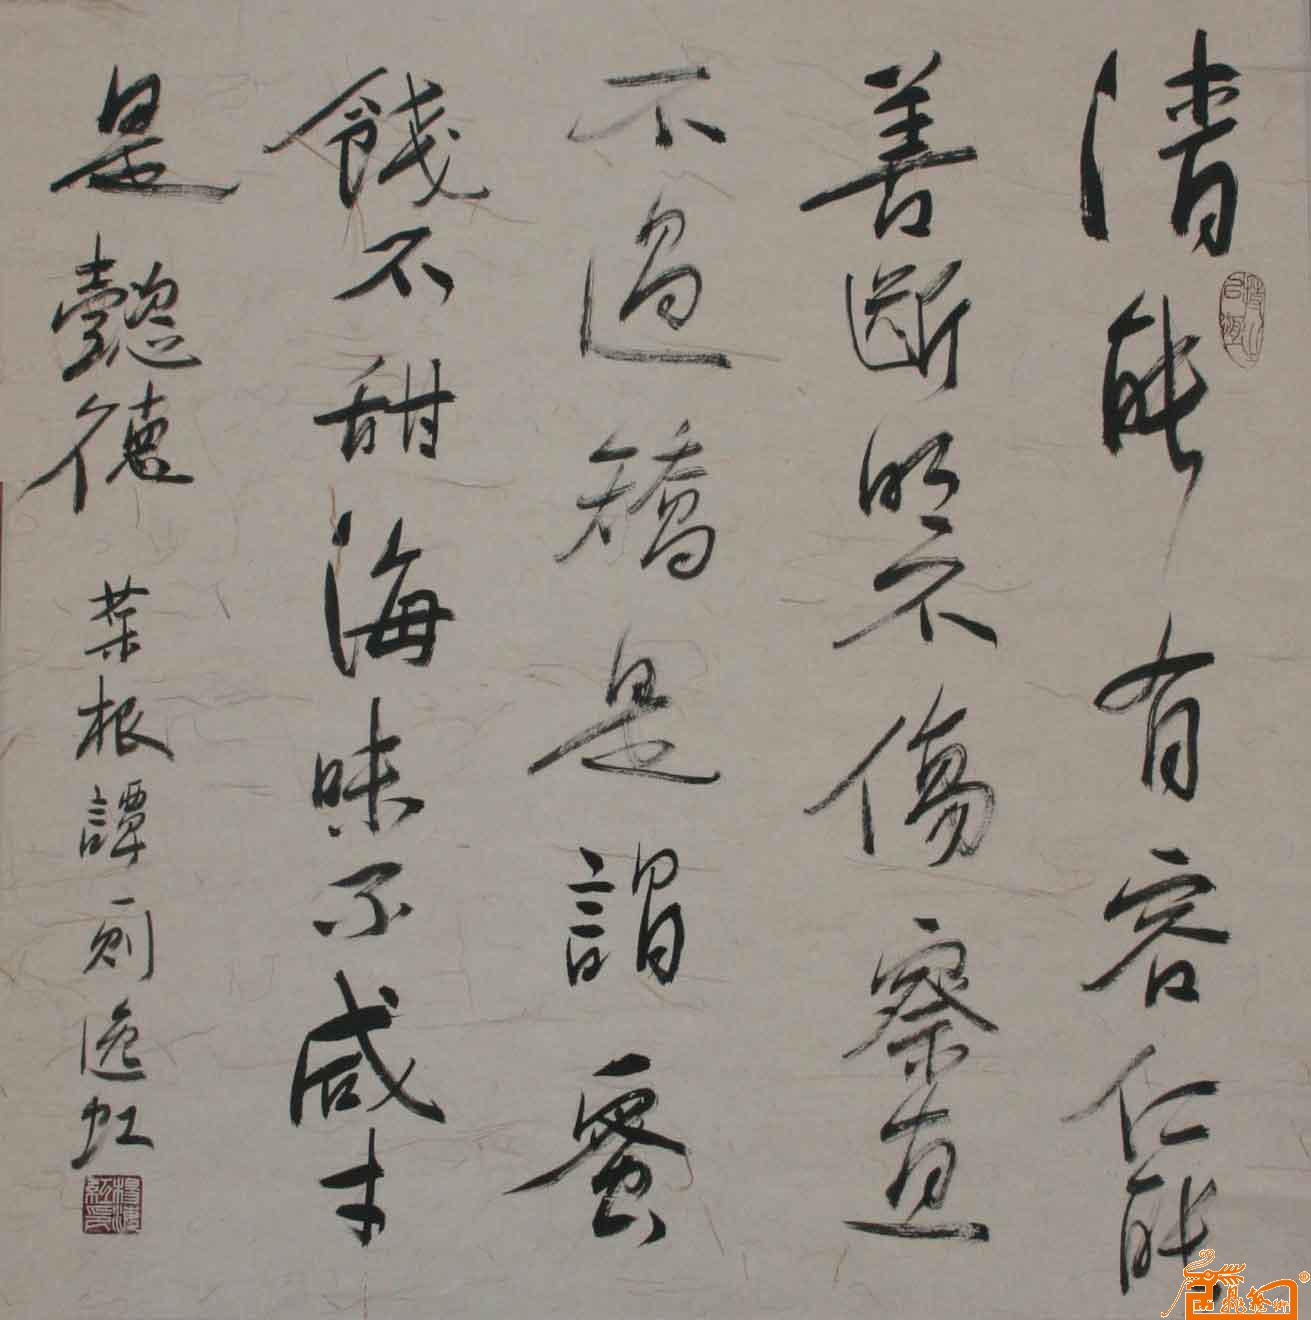 清能有容仁能
善斷明不傷察直
不過矯是謂蜜
餞不甜海味不咸才
是懿德 菜根譚句 逸虹